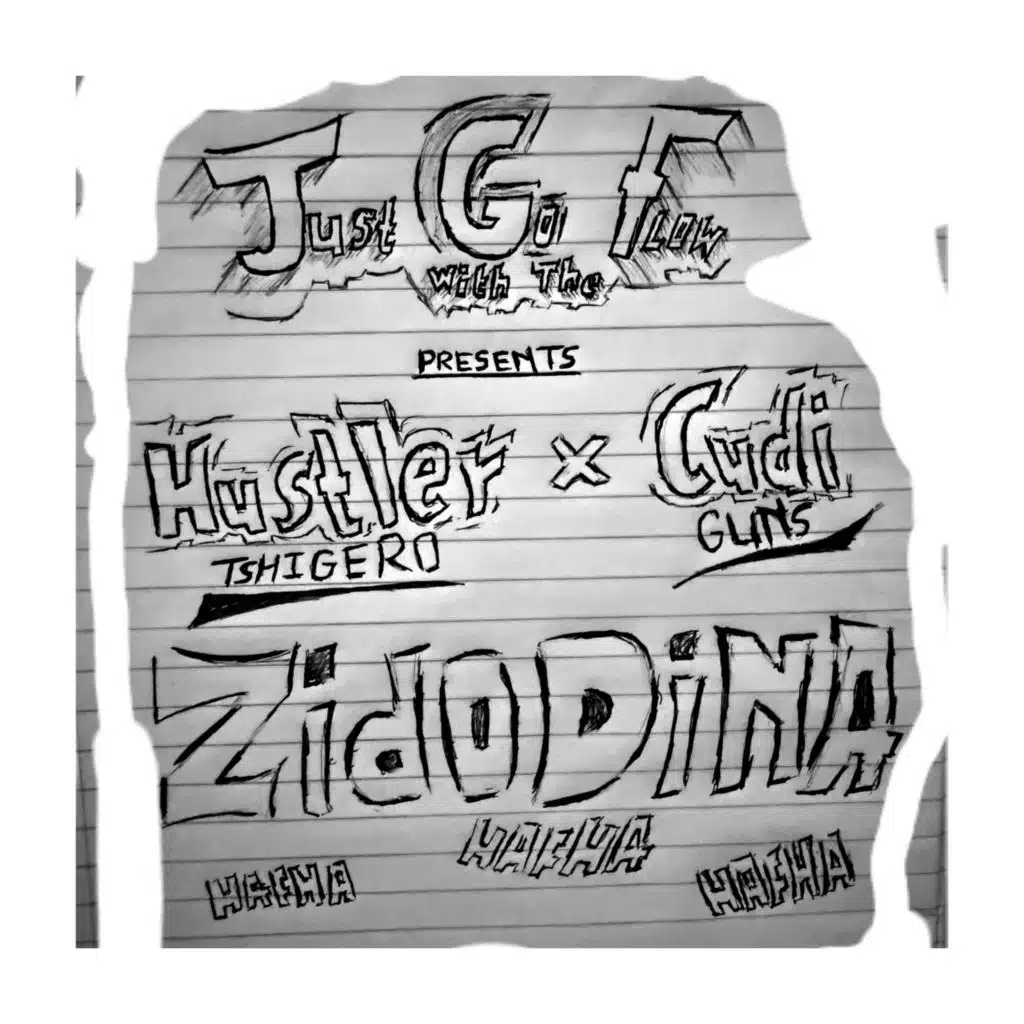 Just Go Flow
with The
PRESENTS
Hustler x Cudi
TSHIGERO GUNS
ZidODiNA
HAFHA
HAFHA HAFHA